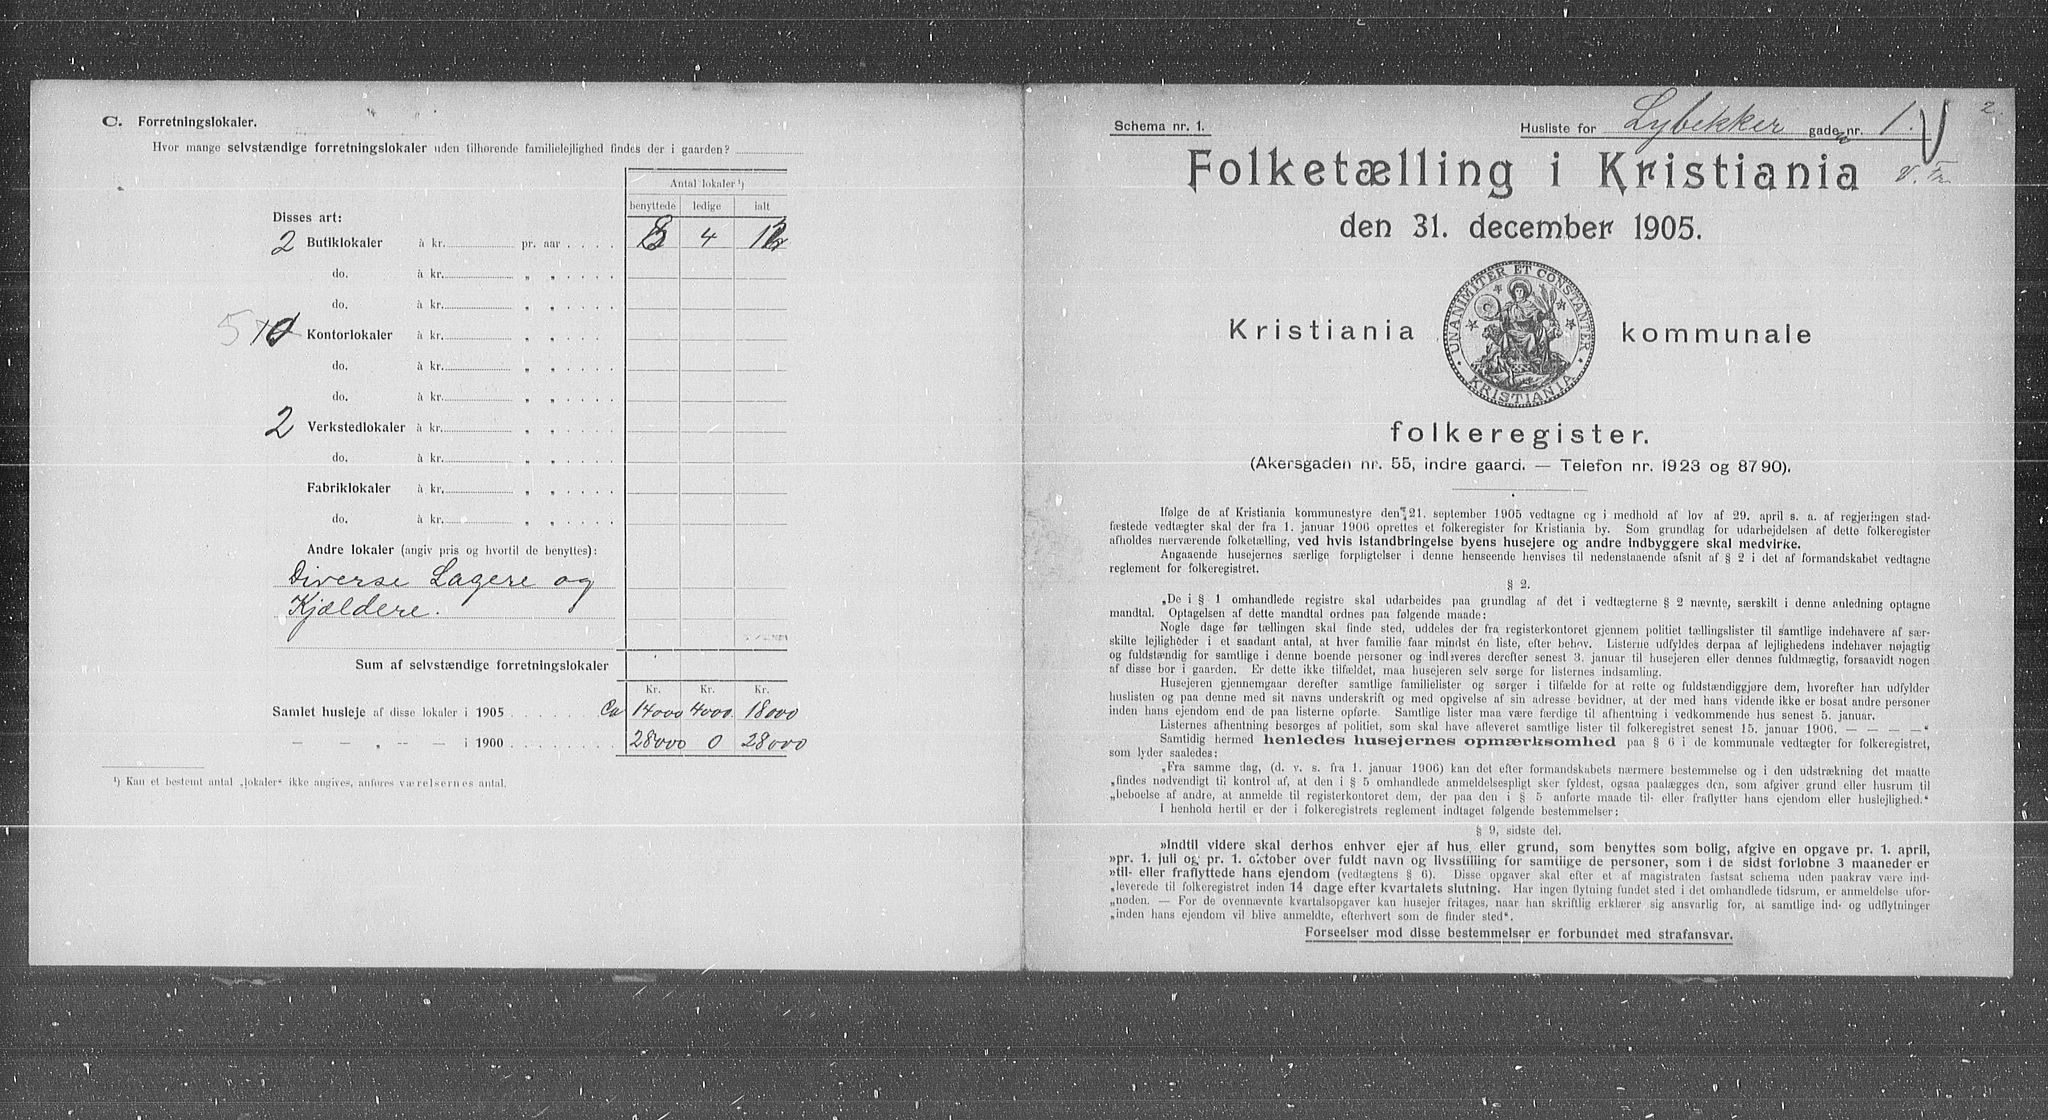 C. Forretningslokaler.
Hvor mange selvstændige forretningslokaler uden tilhørende familielejlighed findes der i gaarden?
Antal lokaler ¹)
benyttede ledige ialt
Disses art:
2 Butiklokaler à kr. pr. aar 4
do. à kr. „ „
do. à kr. „ „
5 Kontorlokaler à kr. „ „
do. à kr. „ „
do. à kr. „ „
2 Verkstedlokaler à kr. „ „
do. à kr. „ „
Fabriklokaler à kr. „ „
do. à kr. „ „
Andre lokaler (angiv pris og hvortil de benyttes):
Diverse Lagere og
Kjældere.
Sum af selvstændige forretningslokaler
Kr. Kr. Kr.
Samlet husleje af disse lokaler i 1905 Ca 14000 4000 18000
— — „ — — i 1900 28000 0 28000
¹) Kan et bestemt antal „lokaler“ ikke angives, anføres værelsernes antal.
2.
Schema nr. 1.
Husliste for Lybekker gaden nr. 1.
Folketælling i Kristiania
den 31. december 1905.
Kristiania kommunale
UNANIMITER ET CONSTANTER
KRISTIANIA
folkeregister.
(Akersgaden nr. 55, indre gaard. — Telefon nr. 1923 og 8790).
Ifølge de af Kristiania kommunestyre den 21. september 1905 vedtagne og i medhold af lov af 29. april s. a. af regjeringen stad-
fæstede vedtægter skal der fra 1. januar 1906 oprettes et folkeregister for Kristiania by. Som grundlag for udarbejdelsen af dette folkeregister
afholdes nærværende folketælling, ved hvis istandbringelse byens husejere og andre indbyggere skal medvirke.
Angaaende husejernes særlige forpligtelser i denne henseende henvises til nedenstaaende afsnit af § 2 i det af formandskabet vedtagne
reglement for folkeregistret.
§ 2.
„De i § 1 omhandlede registre skal udarbeides paa grundlag af det i vedtægterne § 2 nævnte, særskilt i denne anledning optagne
mandtal. Optagelsen af dette mandtal ordnes paa følgende maade:
Nogle dage før tællingen skal finde sted, uddeles der fra registerkontoret gjennem politiet tællingslister til samtlige indehavere af sær-
skilte lejligheder i et saadant antal, at hver familie faar mindst én liste, efter behov. Listerne udfyldes derpaa af lejlighedens indehaver nøjagtig
og fuldstændig for samtlige i denne boende personer og indleveres derefter senest 3. januar til husejeren eller dennes fuldmægtig, forsaavidt nogen
af disse bor i gaarden. Er dette ikke tilfældet, maa husejeren selv sørge for listernes indsamling.
Husejeren gjennemgaar derefter samtlige familielister og sørger i tilfælde for at rette og fuldstændiggjøre dem, hvorefter han udfylder
huslisten og paa denne med sit navns underskrift og med opgivelse af sin adresse bevidner, at der med hans vidende ikke er bosat andre personer
inden hans ejendom end de paa listerne opførte. Samtlige lister maa være færdige til afhentning i vedkommende hus senest 5. januar.
Listernes afhentning besørges af politiet, som skal have afleveret samtlige lister til folkeregistret senest 15. januar 1906. — — — —“
Samtidig hermed henledes husejernes opmærksomhed paa § 6 i de kommunale vedtægter for folkeregistret,
som lyder saaledes:
„Fra samme dag, (d. v. s. fra 1. januar 1906) kan det efter formandskabets nærmere bestemmelse og i den udstrækning det maatte
„findes nødvendigt til kontrol af, at den i § 5 omhandlede anmeldelsespligt sker fyldest, ogsaa paalægges den, som afgiver grund eller husrum til
„beboelse af andre, at anmelde til registerkontoret dem, der paa den i § 5 anførte maade til- eller fraflytter hans ejendom eller huslejlighed.“
I henhold hertil er der i folkeregistrets reglement indtaget følgende bestemmelser:
§ 9, sidste del.
»Indtil videre skal derhos enhver ejer af hus eller grund, som benyttes som bolig, afgive en opgave pr. 1. april,
»pr. 1. juli og pr. 1. oktober over fuldt navn og livsstilling for samtlige de personer, som i de sidst forløbne 3 maaneder er
»til- eller fraflyttede hans ejendom (vedtægtens § 6). Disse opgaver skal efter et af magistraten fastsat schema uden paakrav være ind-
„leverede til folkeregistret inden 14 dage efter kvartalets slutning. Har ingen flytning fundet sted i det omhandlede tidsrum, er anmeldelse ufor-
„nøden. — For de ovennævnte kvartalsopgaver kan husejer fritages, naar han skriftlig erklærer sig ansvarlig for, at samtlige ind- og udflytninger
„inden hans ejendom vil blive anmeldte, efterhvert som de finder sted“.
Forseelser mod disse bestemmelser er forbundet med strafansvar.